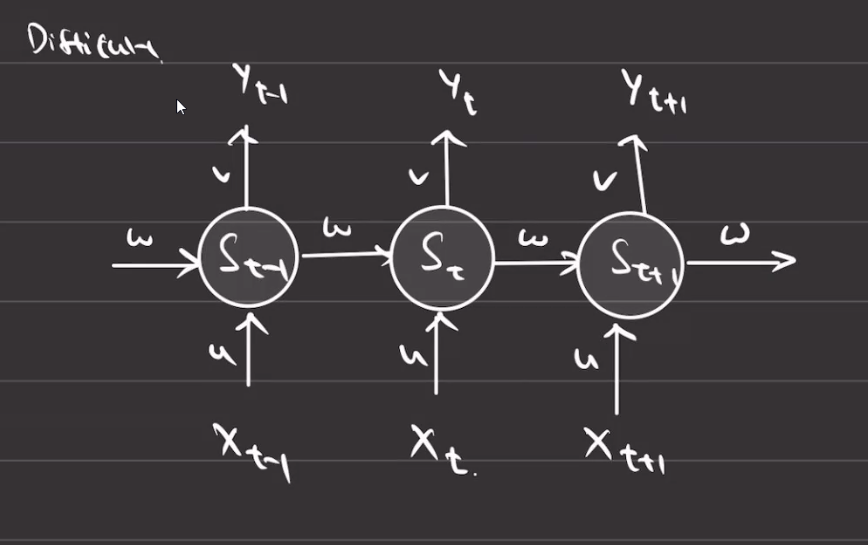 Difficult
Yt-1 Yt Yt+1
v v v
w w w w
St-1 St St+1
u u u
Xt-1 Xt. Xt+1